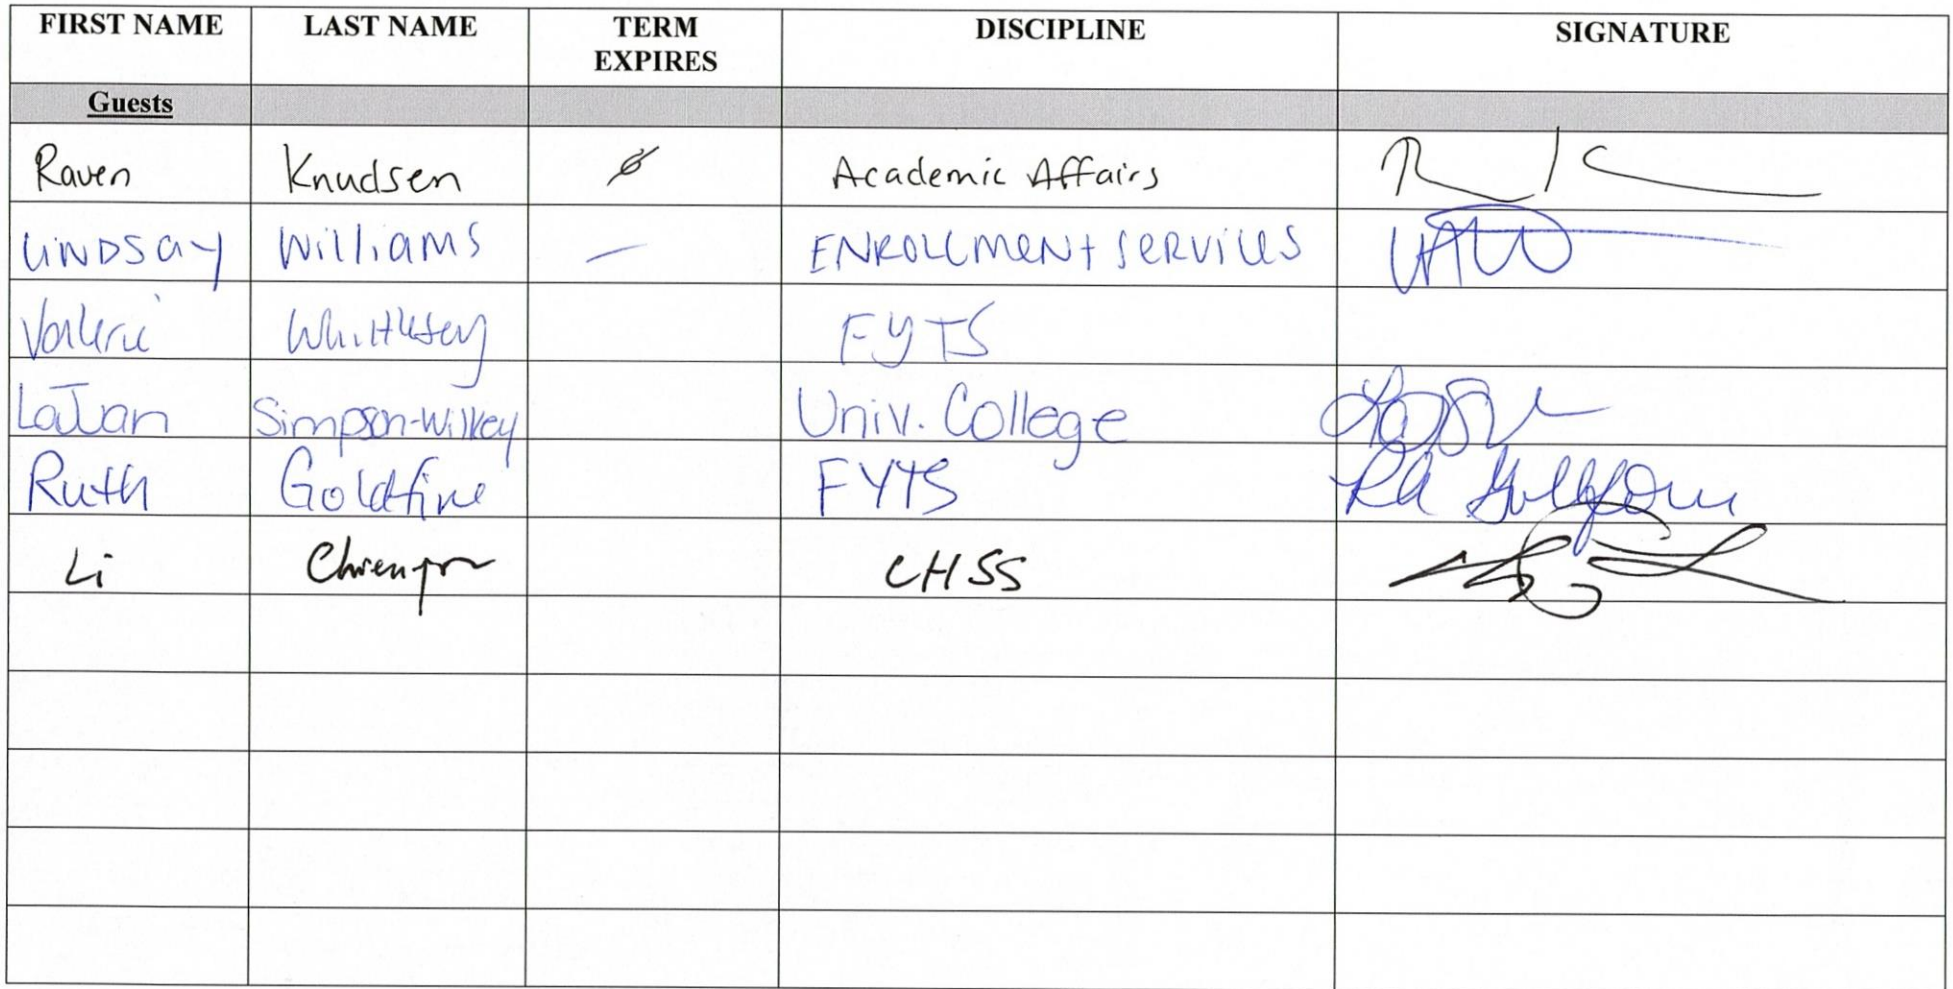 FIRST NAME LAST NAME TERM EXPIRES DISCIPLINE SIGNATURE
Guests
Raven Knudsen Ø Academic Affairs
LINDSAY Williams — ENROLLMENT SERVICES
Valerie Whittlesey FYTS
LaJuan Simpson-Wilkey Univ. College
Ruth Goldfine FYTS
Li CHSS